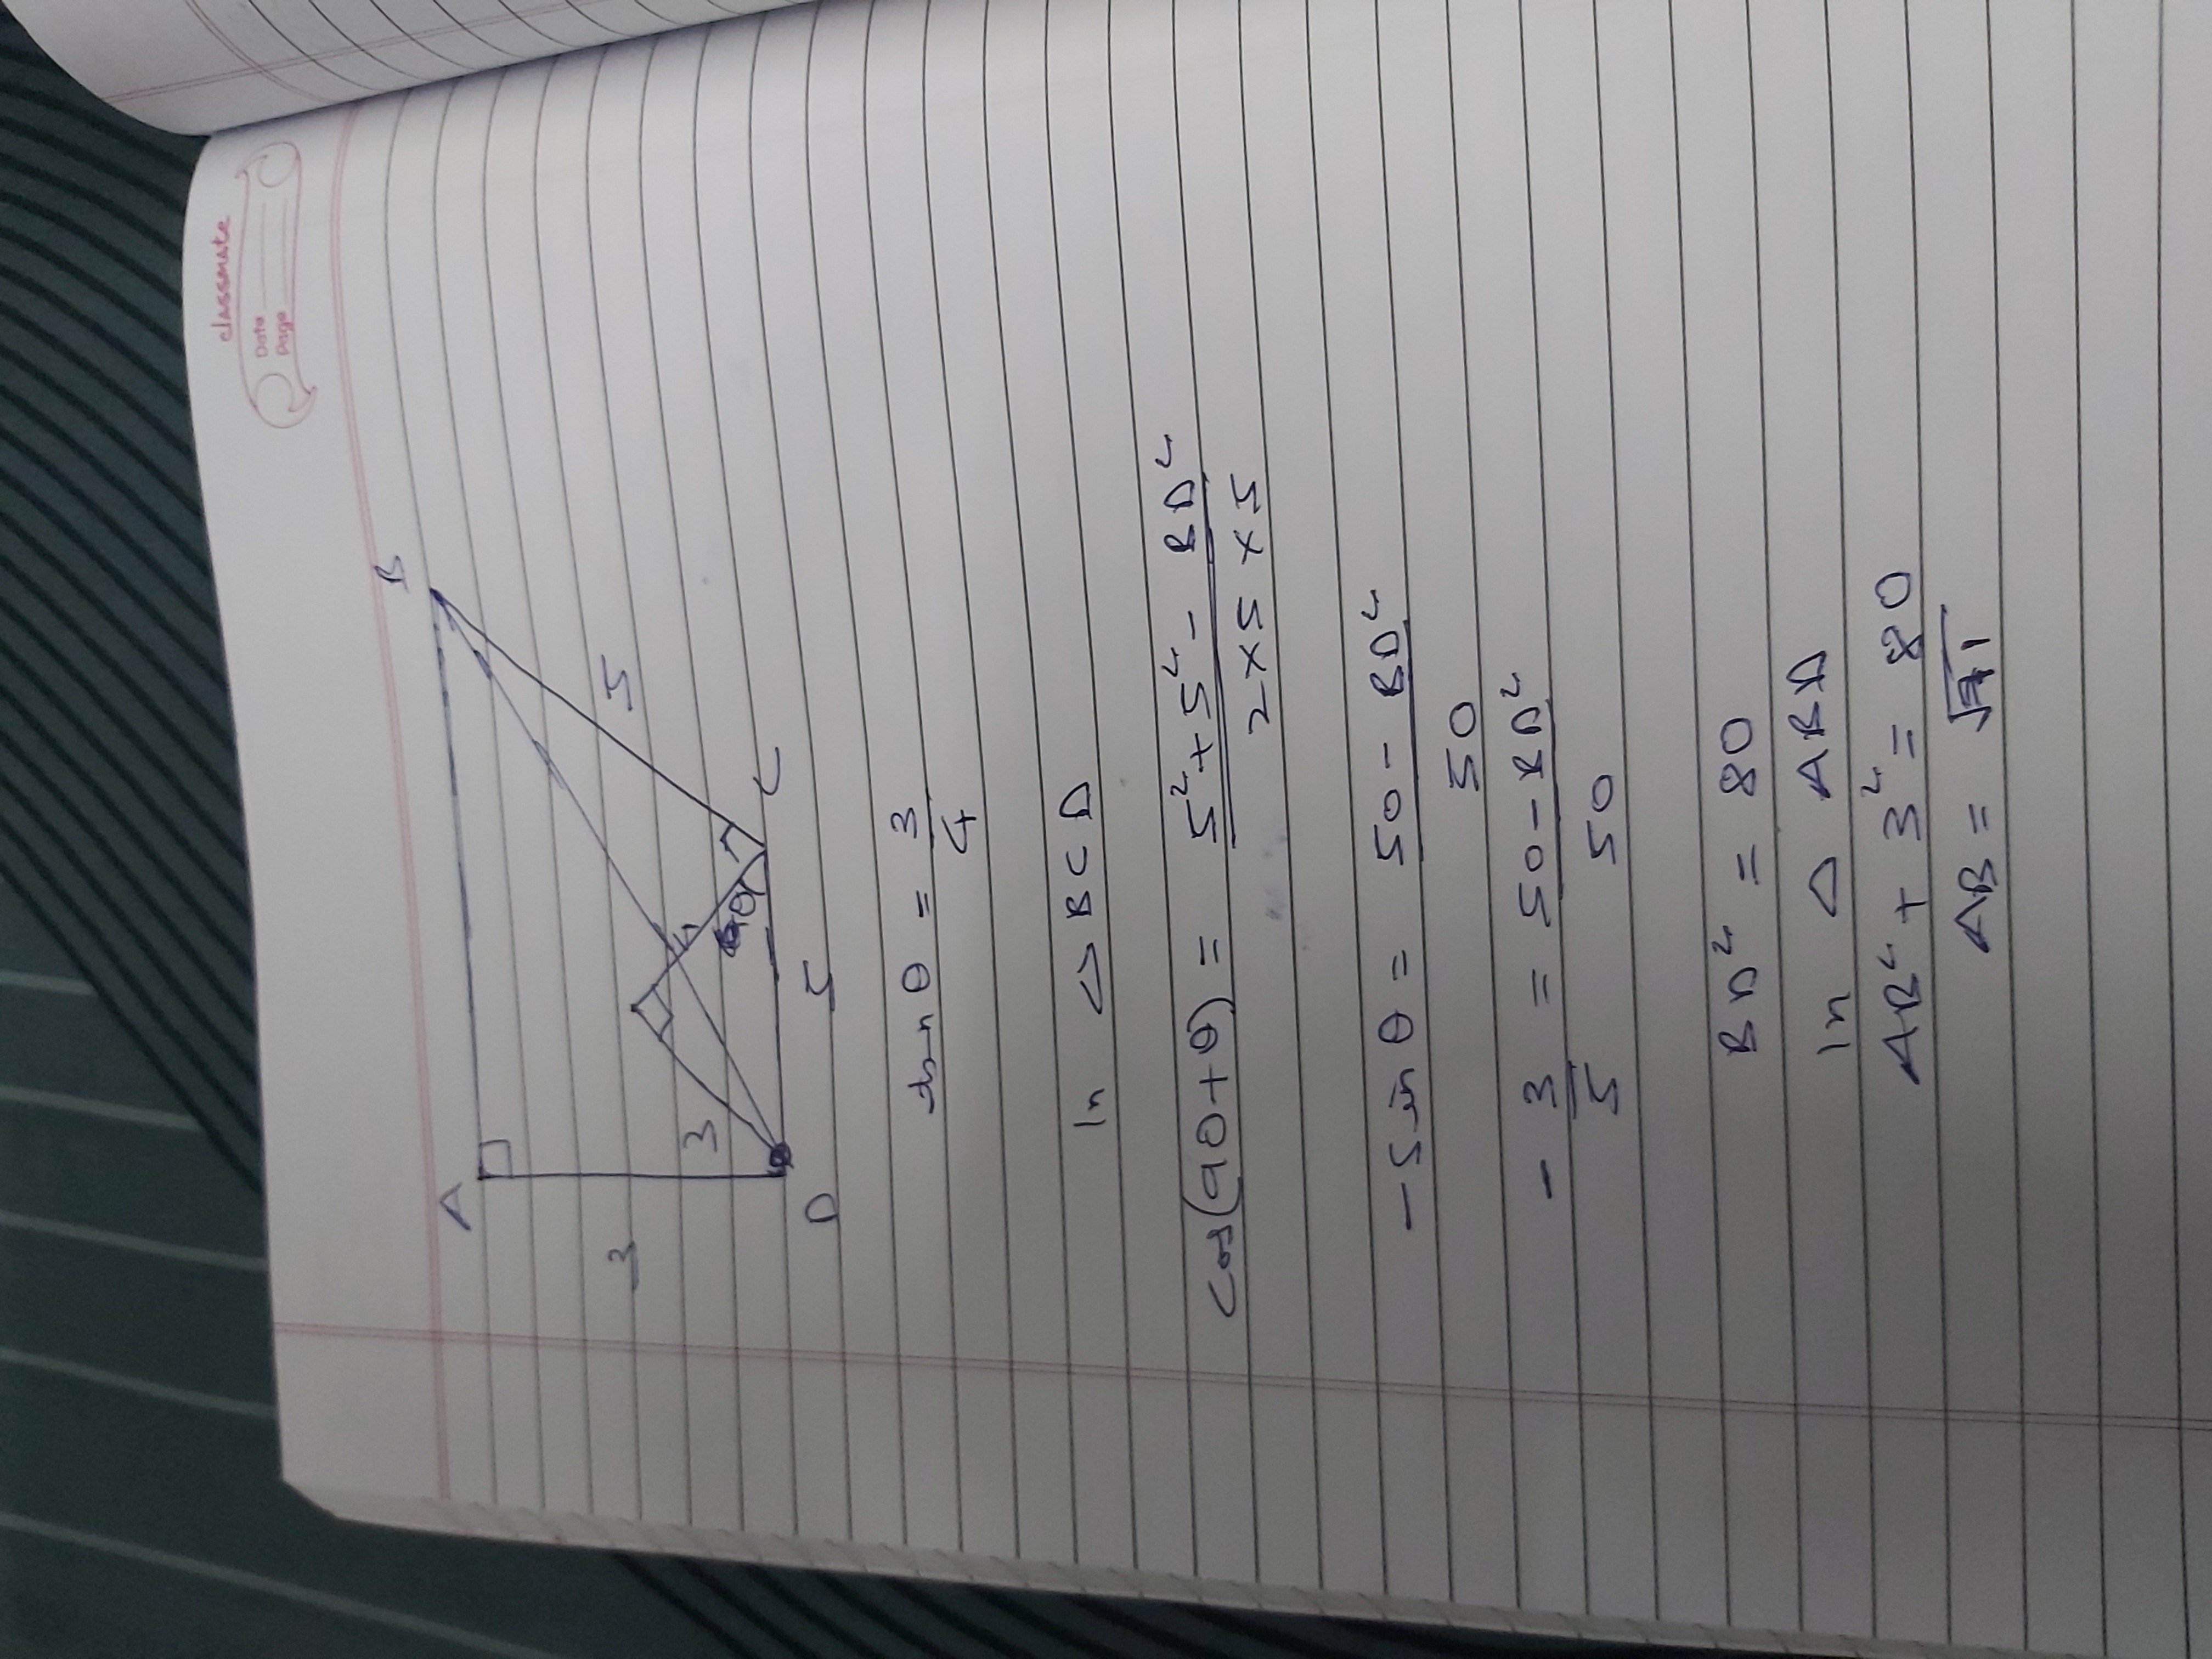 classmate
Date
Page
A
B
3
3
5
θ
C
D
5
tan θ = 3/4
In <> BCD
cos(90+θ) = 5²+5² - BD²
2×5×5
-sin θ = 50 - BD²
50
-3/5 = 50 - BD²
50
BD² = 80
In Δ ABD
AB² + 3² = 80
AB = √71